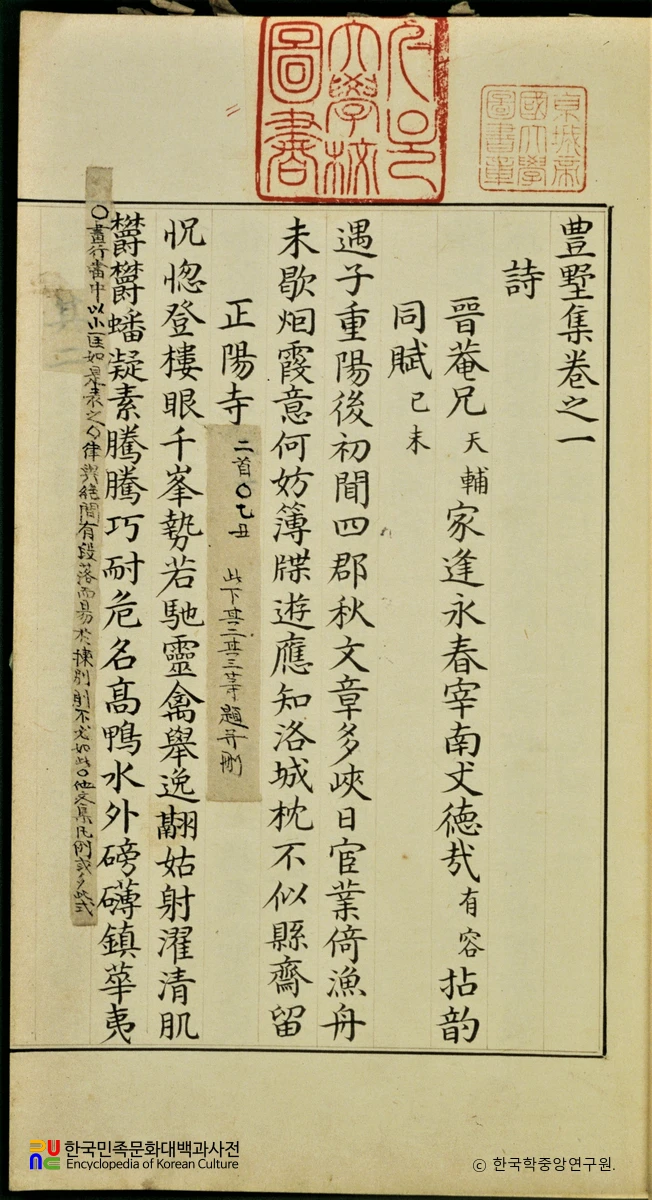 서울大學校圖書
京城帝國大學圖書章
豊墅集卷之一
詩
晉菴兄天輔家逢永春宰南丈德哉有容拈韵
同賦己未
遇子重陽後初聞四郡秋文章多峽日宦業倚漁舟
未歇烟霞意何妨簿牒遊應知洛城枕不似縣齋留
正陽寺二首〇乙丑 此下其二其三等題并刪
怳惚登樓眼千峯勢若馳靈禽舉逸翮姑射濯清肌
欝欝蟠凝素騰騰巧耐危名高鴨水外磅礴鎮華夷
〇畫行當中以小匡如是表之〇律與絶間有段落而易於揀別則不如此〇他文集凡例或多此式
한국민족문화대백과사전
Encyclopedia of Korean Culture
ⓒ 한국학중앙연구원.